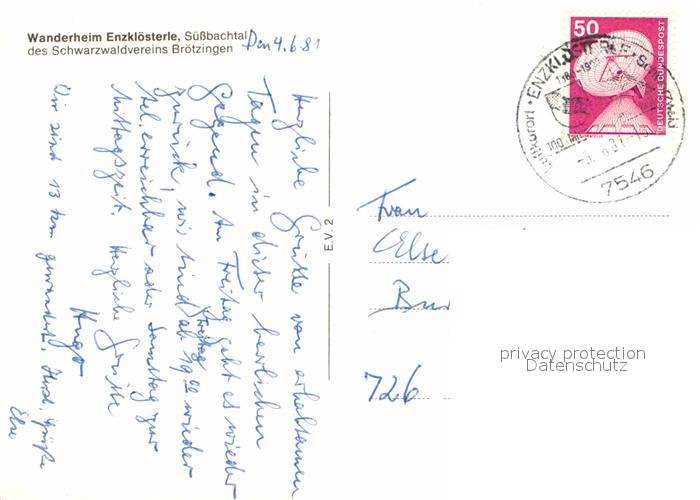 Wanderheim Enzklösterle, Süßbachtal
des Schwarzwaldvereins Brötzingen
Den 4.6.81
Herzliche Grüße von erholsamen
Tagen in dieser herrlichen
Gegend. Am Freitag geht es wieder
zurück, wir sind Freitag ab 19 00 wieder
tel. erreichbar oder Samstag zur
Mittagszeit. Herzliche Grüße
Hugo
Wir sind 13 km gewandert. Herzl. Grüße
Else
E.V. 2
Frau
Else
726
50
DEUTSCHE BUNDESPOST
Luftkurort · ENZKLÖSTERLE · Schwarzwald
7546
privacy protection
Datenschutz